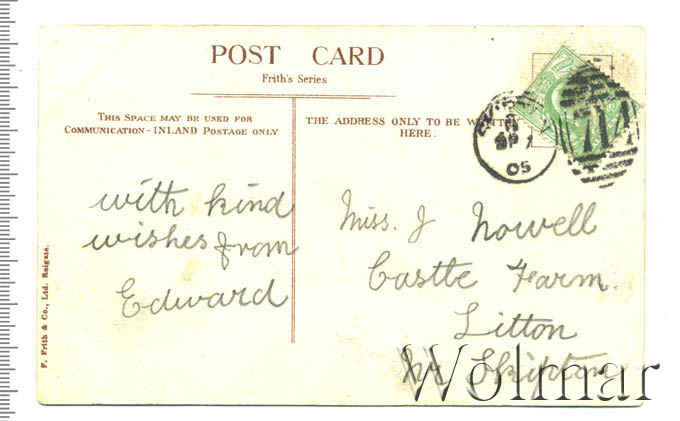 POST CARD
Frith's Series
THIS SPACE MAY BE USED FOR
COMMUNICATION - INLAND POSTAGE ONLY
THE ADDRESS ONLY TO BE WRITTEN
HERE.
with kind
wishes from
Edward
Miss. J Nowell
Castle Farm.
Litton
Nr Skipton
F. Frith & Co., Ltd. Reigate.
05
Wolmar